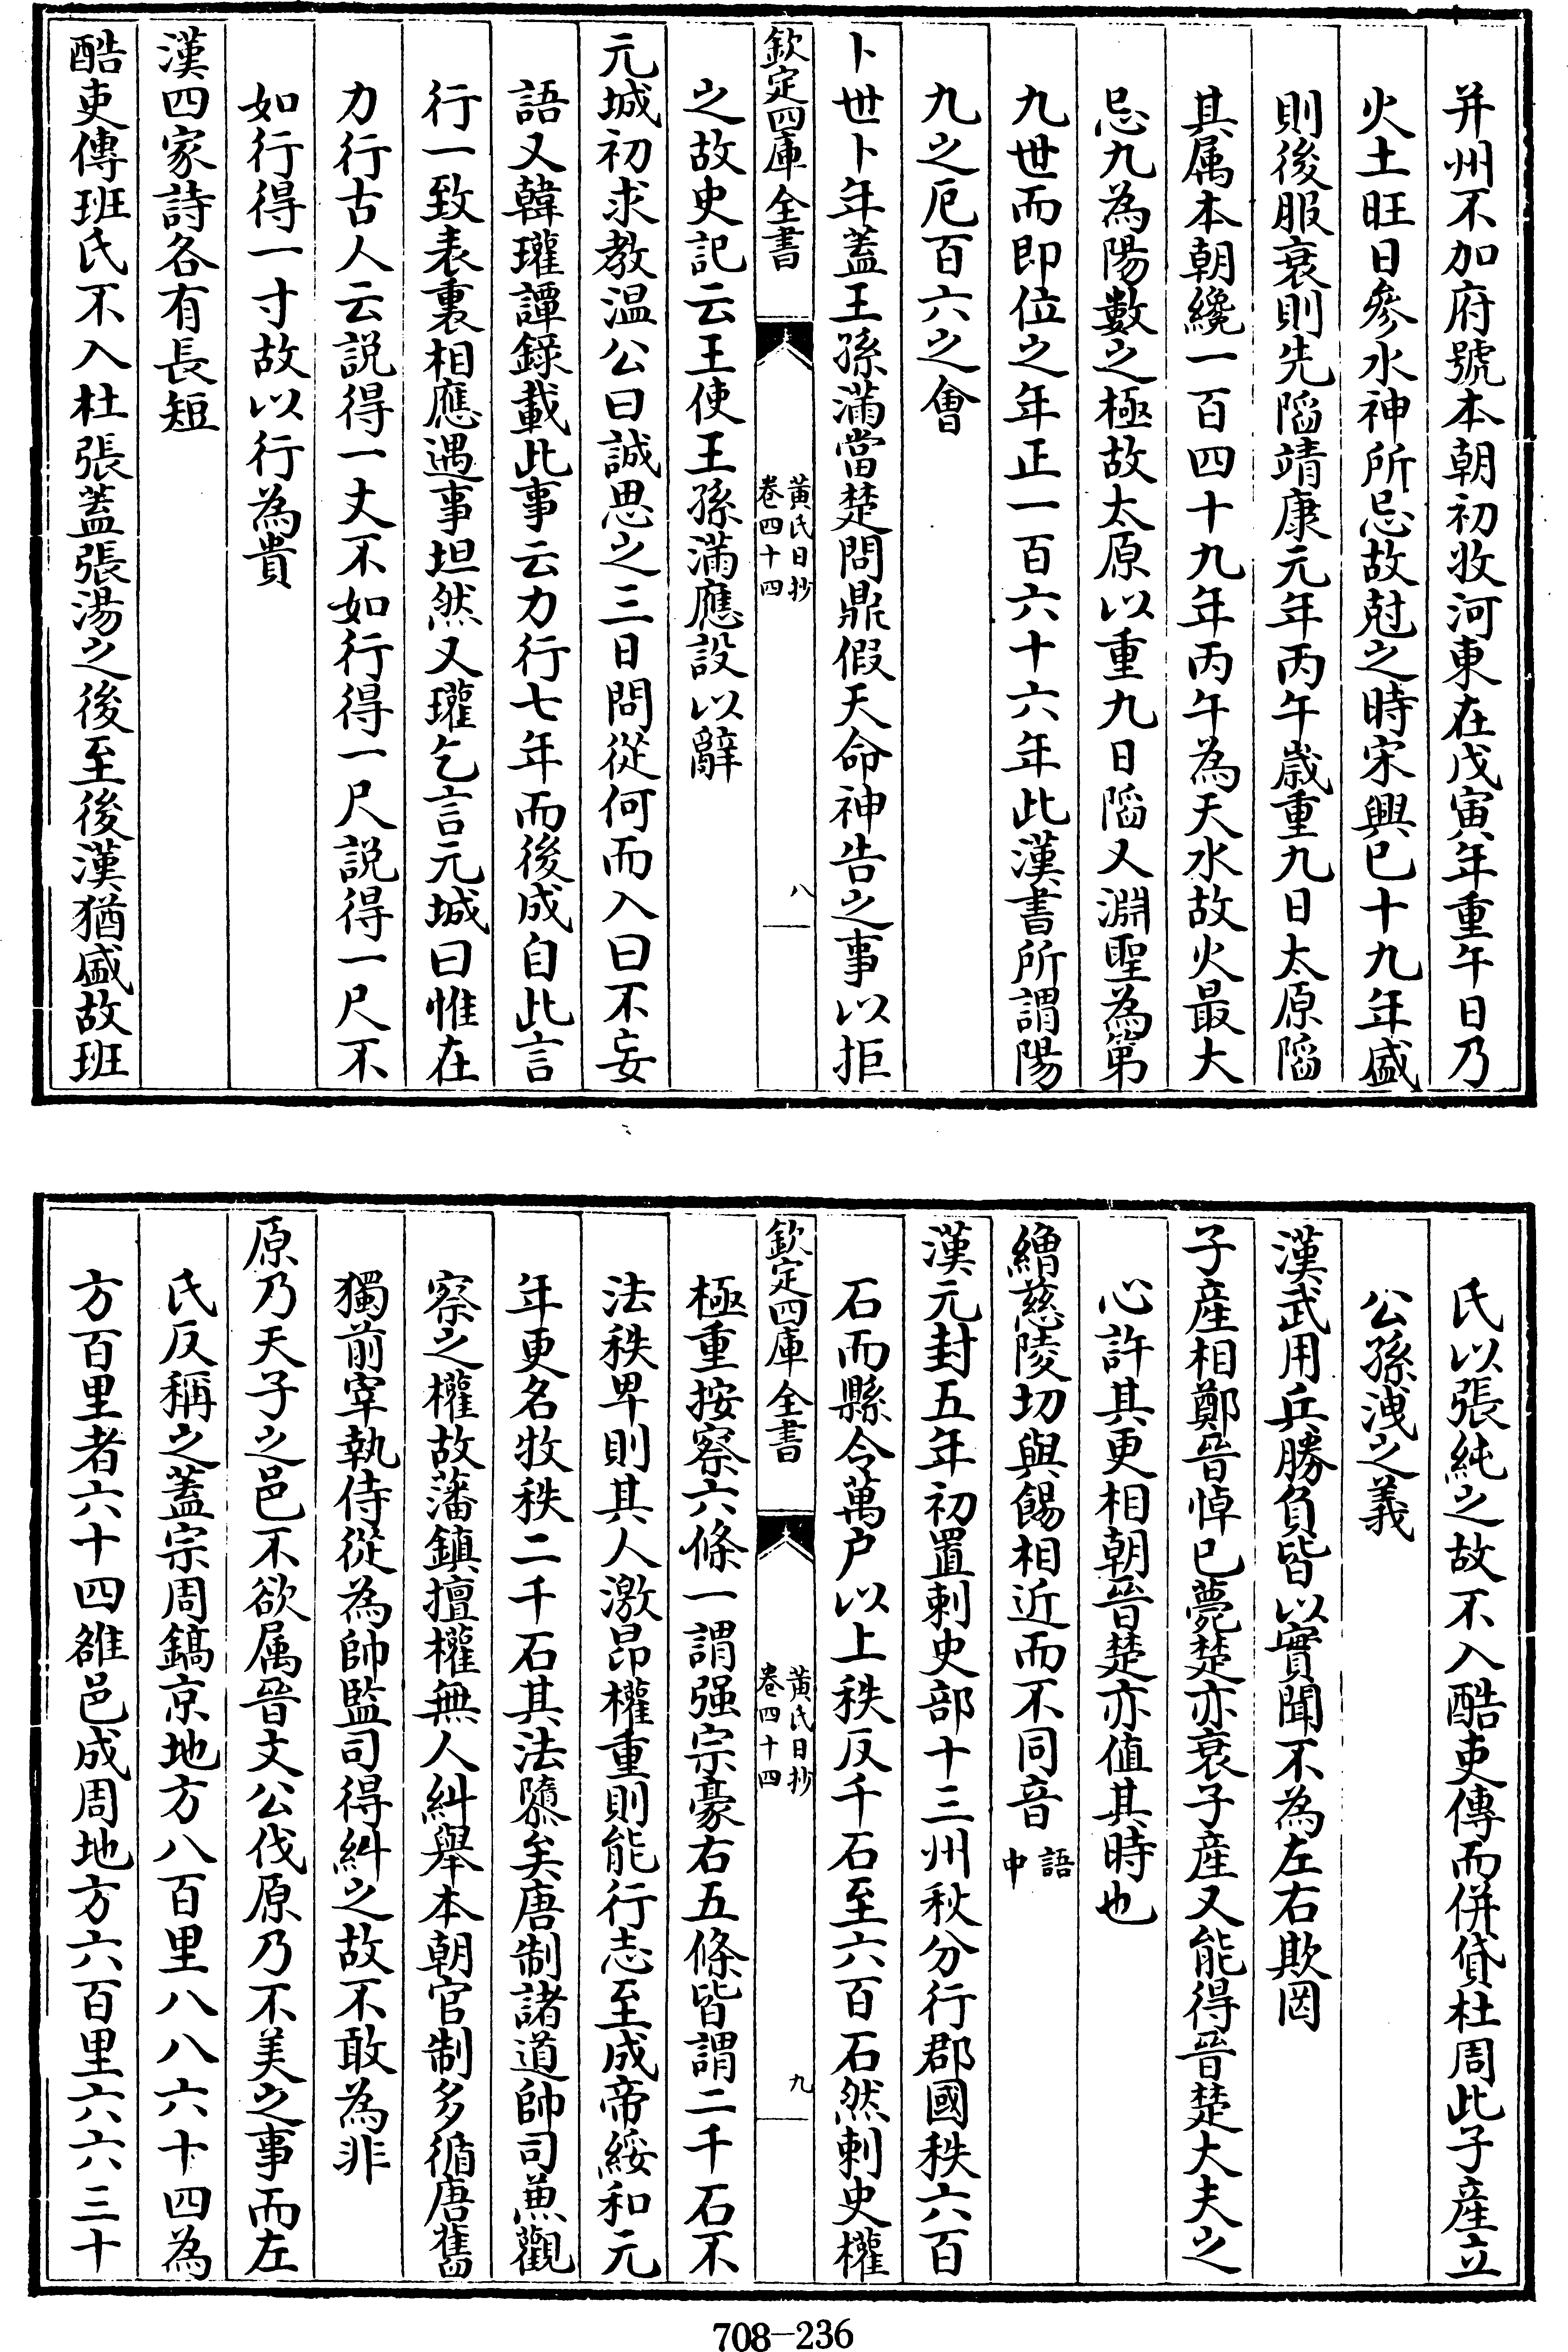 并州不加府號本朝初收河東在戊寅年重午日乃
火土旺日參水神所忌故尅之時宋興已十九年盛
則後服衰則先陷靖康元年丙午歲重九日太原陷
其属本朝纔一百四十九年丙午為天水故火最大
忌九為陽數之極故太原以重九日陷又淵聖為第
九世而即位之年正一百六十六年此漢書所謂陽
九之厄百六之會
卜世卜年蓋王孫滿當楚問鼎假天命神告之事以拒
欽定四庫全書
黄氏日抄
卷四十四
八
之故史記云王使王孫滿應設以辭
元城初求教温公曰誠思之三日問從何而入曰不妄
語又韓瓘譚錄載此事云力行七年而後成自此言
行一致表裏相應遇事坦然又瓘乞言元城曰惟在
力行古人云説得一丈不如行得一尺説得一尺不
如行得一寸故以行為貴
漢四家詩各有長短
酷吏傳班氏不入杜張蓋張湯之後至後漢猶盛故班
氏以張純之故不入酷吏傳而併貸杜周此子產立
公孫洩之義
漢武用兵勝負皆以實聞不為左右欺罔
子產相鄭晉悼已薨楚亦衰子產又能得晉楚大夫之
心許其更相朝晉楚亦值其時也
繒慈陵切與餳相近而不同音語中
漢元封五年初置刺史部十三州秋分行郡國秩六百
石而縣令萬户以上秩反千石至六百石然刺史權
欽定四庫全書
黄氏日抄
卷四十四
九
極重按察六條一謂强宗豪右五條皆謂二千石不
法秩卑則其人激昂權重則能行志至成帝綏和元
年更名牧秩二千石其法隳矣唐制諸道帥司兼觀
察之權故藩鎮擅權無人糾舉本朝官制多循唐舊
獨前宰執侍從為帥監司得糾之故不敢為非
原乃天子之邑不欲属晉文公伐原乃不美之事而左
氏反稱之蓋宗周鎬京地方八百里八八六十四為
方百里者六十四雒邑成周地方六百里六六三十
708-236